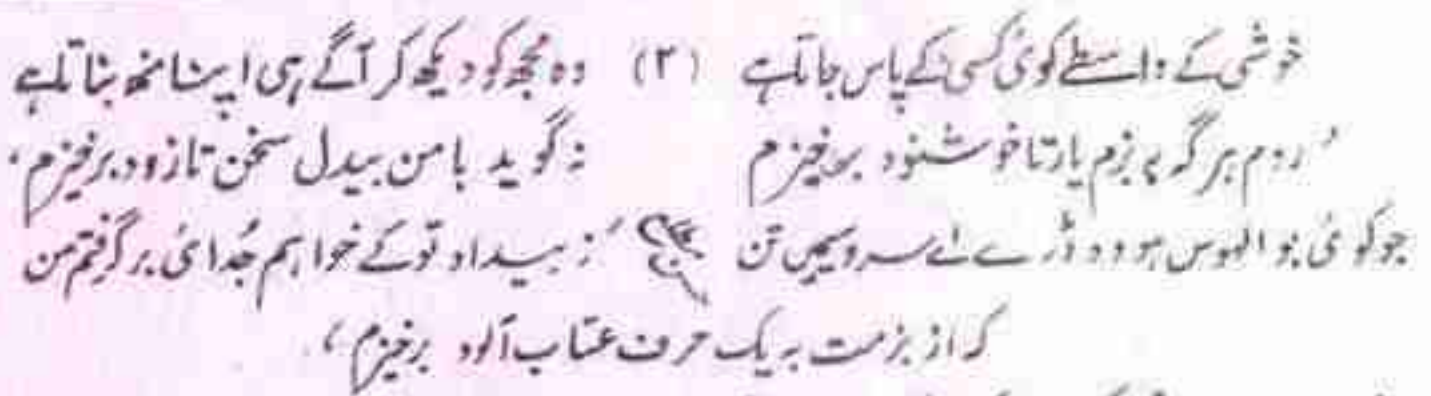 خوشی کے واسطے کوئی کسی کے پاس جاتا ہے (۲) وہ مجھ کو دیکھ کر آگے ہی اپنا منھ بناتا ہے
'روم ہر گہ بہ بزم یار تا خوشنود برخیزم نہ گوید با من بیدل سخن تا زود برخیزم'
جو کوئی بوالہوس ہو وہ ڈرے اے سرو سیمیں تن 'ز بیداد تو کے خواہم جُدائی برگرفتم من
کہ از بزمت بہ یک حرف عتاب آلود برخیزم'